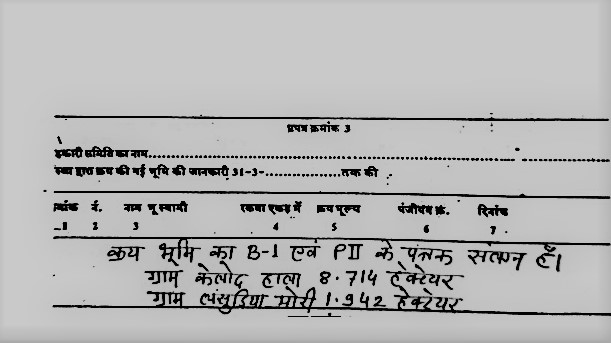 प्रपत्र क्रमांक 3
हकारी समिति का नाम
स्था द्वारा क्रय की गई भूमि की जानकारी 31-3-..............तक की
मांक नं. नाम भूस्वामी रकबा एकड़ में क्रय मूल्य पंजीयन क्र. दिनांक
1 2 3 4 5 6 7
क्रय भूमि का B-1 एवं PII के पंत्रक संलग्न हैं।
ग्राम केलोद हाला 8.714 हेक्टेयर
ग्राम लसुडिया मोरी 1.942 हेक्टेयर